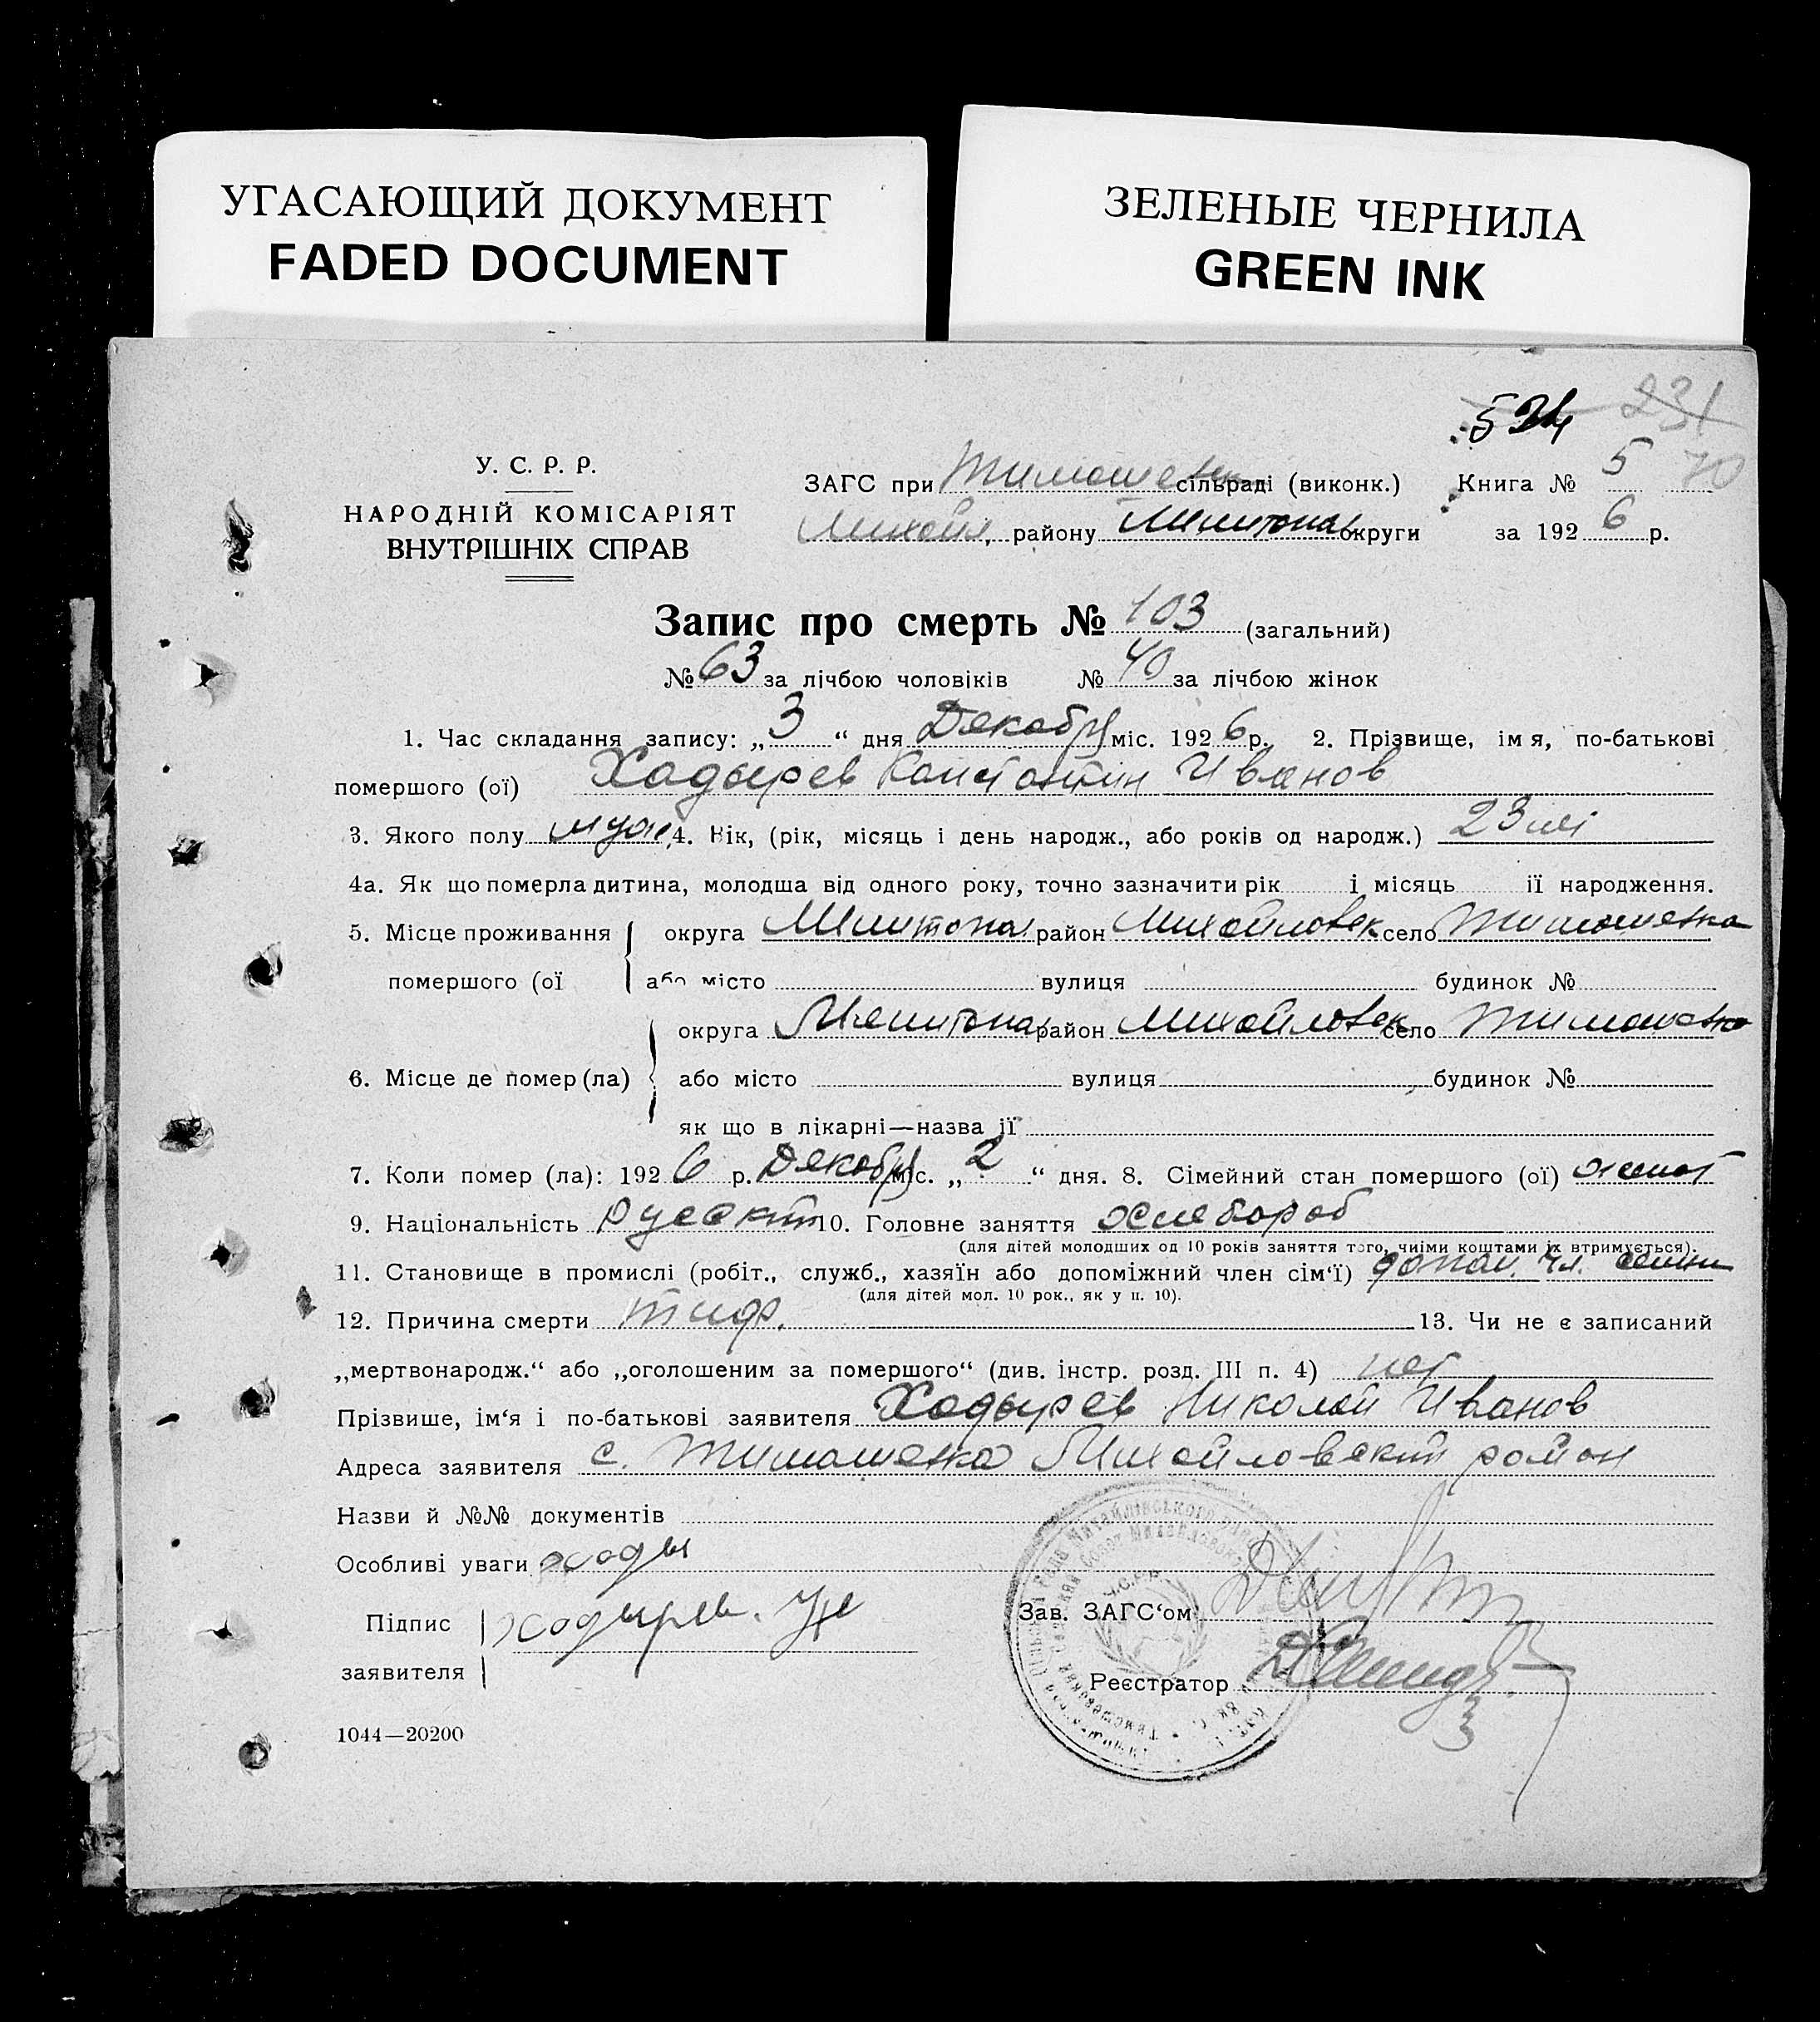 УГАСАЮЩИЙ ДОКУМЕНТ
FADED DOCUMENT
ЗЕЛЕНЫЕ ЧЕРНИЛА
GREEN INK
231
У. С. Р. Р.
НАРОДНІЙ КОМІСАРІЯТ
ВНУТРІШНІХ СПРАВ
ЗАГС при Тимошевск сільраді (виконк.) Книга № 5 70
Михайл. району Мелитопол округи за 1926 р.
Запис про смерть № 103 (загальний)
№ 63 за лічбою чоловіків № 40 за лічбою жінок
1. Час складання запису: „3“ дня Декабря міс. 1926 р. 2. Прізвище, імя, по-батькові
помершого (ої) Ходырев Константин Иванов
3. Якого полу муж 4. Вік, (рік, місяць і день народж., або років од народж.) 23 лет
4а. Як що померла дитина, молодша від одного року, точно зазначити рік і місяць її народження.
5. Місце проживання округа Мелитопол район Михайловск село Тимошевка
помершого (ої або місто вулиця будинок №
округа Мелитопол район Михайловск село Тимошевка
6. Місце де помер (ла) або місто вулиця будинок №
як що в лікарні—назва її
7. Коли помер (ла): 1926 р. Декабря міс. „2“ дня. 8. Сімейний стан помершого (ої) женат
9. Національність Русский 10. Головне заняття хлебороб
(для дітей молодших од 10 років заняття того, чиїми коштами їх втримується).
11. Становище в промислі (робіт., служб., хазяїн або допоміжний член сім‘ї) допом. чл. семьи
(для дітей мол. 10 рок., як у п. 10).
12. Причина смерти тиф. 13. Чи не є записаний
„мертвонародж.“ або „оголошеним за помершого“ (див. інстр. розд. III п. 4) нет
Прізвише, ім‘я і по-батькові заявителя Ходырев Николай Иванов
Адреса заявителя с. Тимошевка Михайловский район
Назви й №№ документів
Особливі уваги ходы
Підпис Ходырев.
заявителя
Зав. ЗАГС‘ом
Реєстратор
1044—20200